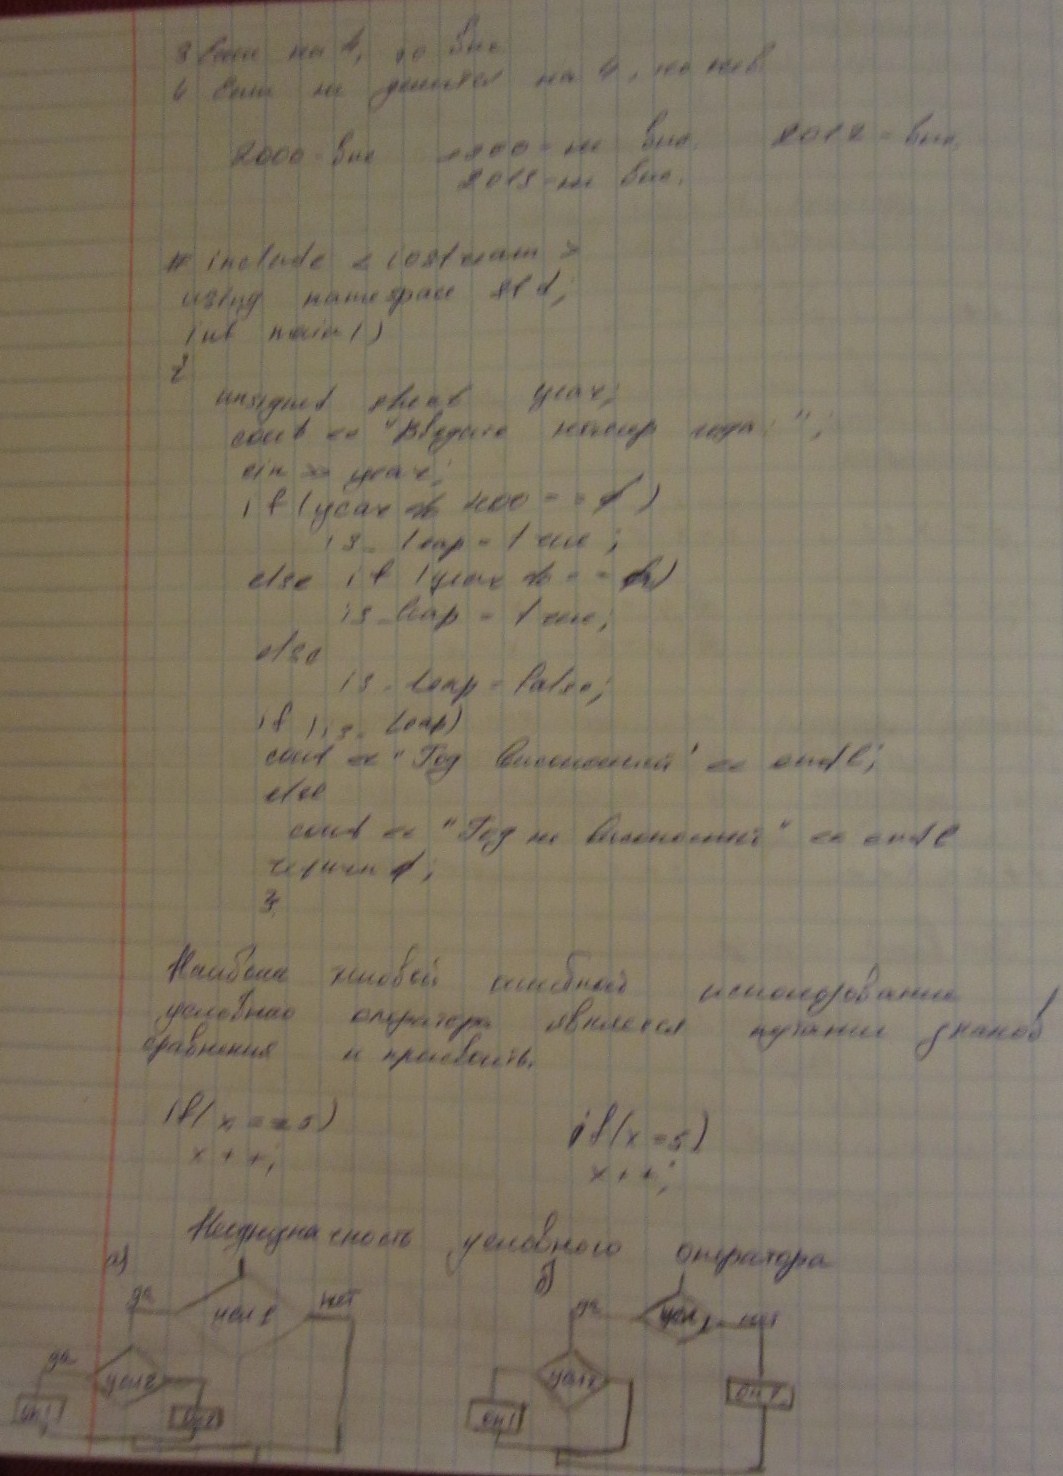 на 4, то вис
6 Если не делится на 4, то нев
2000 - вис 2200 - не вис. 2012 - вис.
2013 - не вис.
# include < iostream >
using namespace std;
int main()
{
unsigned short year;
cout << "Введите номер года: ";
cin >> year;
if (year % 400 == 0)
is_leap = true;
else if (year % == 0)
is_leap = true;
else
is_leap = false;
if (is_leap)
cout << "Год високосный" << endl;
else
cout << "Год не високосный" << endl
return 0;
}
Наиболее ошибкой использование
условного оператора является путание знаков
сравнения и присвоить.
if (x == 5) if (x = 5)
x ++; x ++;
Неоднозначность условного оператора
а) б)
да усл 1 нет да усл 1 нет
да усл 2 усл 2
оп 1 оп 2 оп 1 оп 2